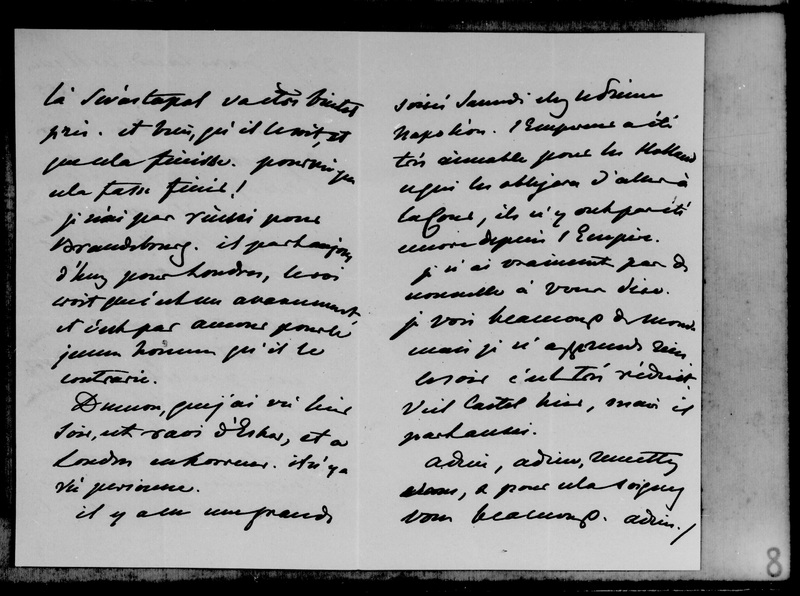 là Sévastopol va être bientot
pris. et bien, qu'il le soit, et
que cela finisse. pourvu que
cela fasse finir !
je n'ai pas réussi pour
Brandebourg. il part aujour
d'huy pour Londres, le roi
croit que c'est un avancement
et c'est par amour pour le
jeune homme qu'il le
contrarie.
Dumon, que j'ai vu hier
soir, est ravi d'Eshar, et a
Londres en horreur. il n'y a
vu personne.
il y a eu une grande
soirée Samedi chez le Prince
Napoléon. l'Empereur a été
très aimable pour les Holland
ce qui les obligera d'aller à
la Cour, ils n'y ont pas été
encore depuis l'Empire.
je n'ai vraiment pas de
nouvelle à vous dire.
je vois beaucoup de monde
mais je n'apprends rien
le soir c'est très réduit
Viel Castel hier, mais il
part aussi.
adieu, adieu,
vous, & pour cela soignez
vous beaucoup. adieu./
8